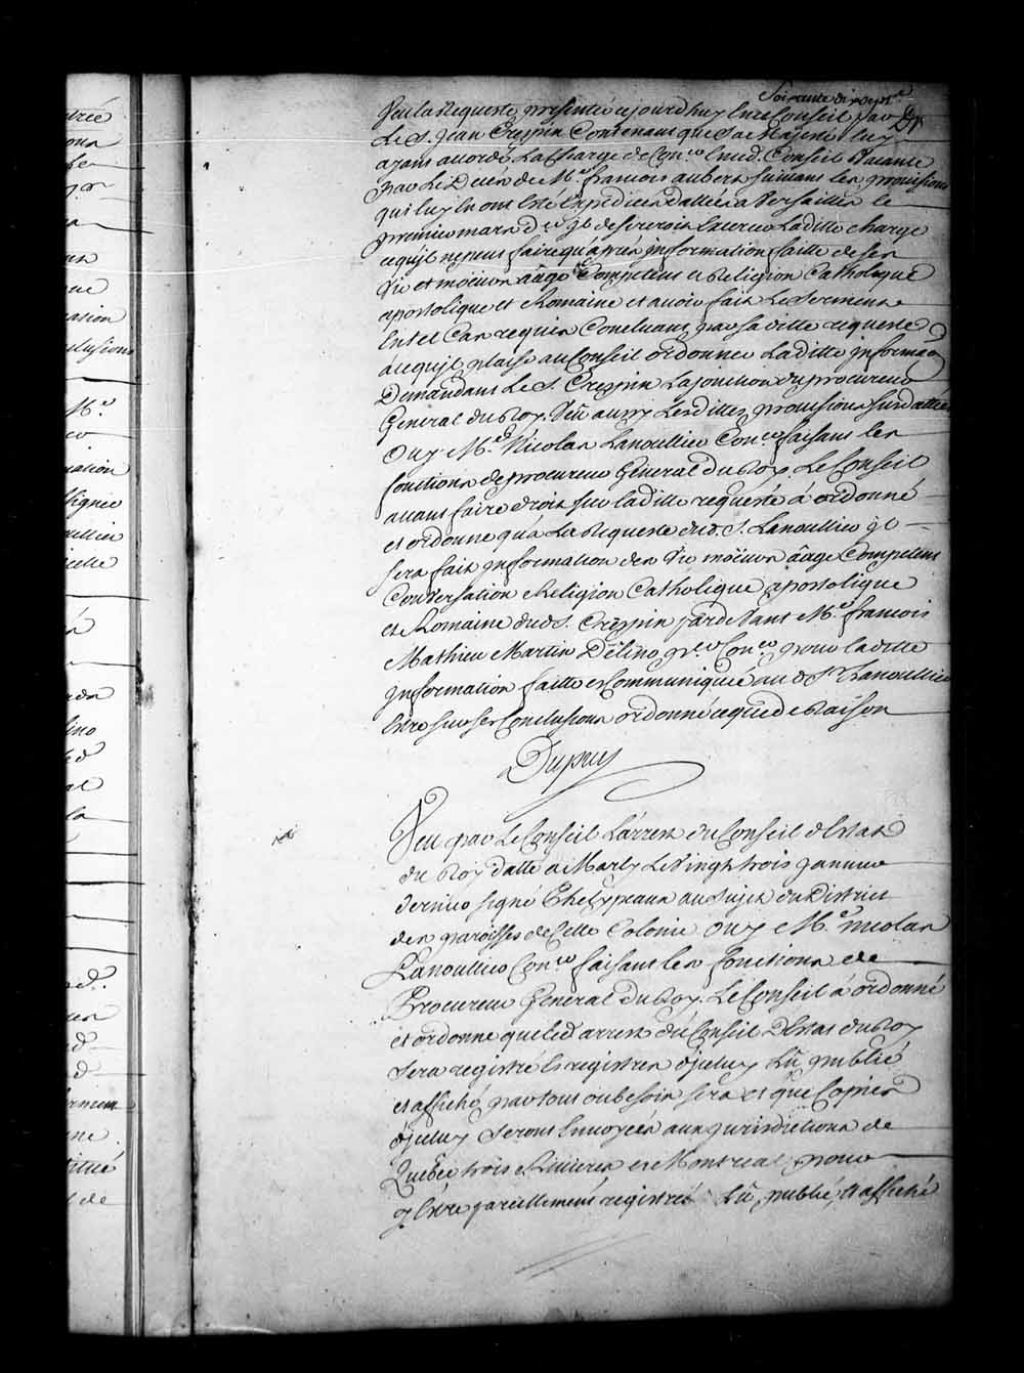 Soixante dix sept.e
Veu la Requeste presentée ce jourdhuy En ce Conseil par
Le S. Jean Crespin Contenant que Sa Majesté luy
ayant accordé La Charge de Con.er En ced. Conseil Vacante
par Le Deces de M.e françois aubert suivant les provisions
qui luy En ont Esté Expediées dattées a Versailles le
premier mars d.er Il desireroit Exercer La ditte charge
ce qu'il ne peut faire qu'après Information faitte de ses
Vie et moeurs âage Competent et Religion Catholique
apostolique et Romaine et avoir fait Le serment
En tel Cas requis Concluant par sa ditte requeste
a ce qu'il plaise au Conseil ordonner La ditte Informaõn
Demandant Le S. Crespin La jonction du procureur
General du Roy. Veu aussy Lesdittes provisions susdattées
Ouy M.e Nicolas Lanoullier Con.er faisant les
fonctions de procureur General du Roy. Le Conseil
avant faire droit sur laditte requeste à ordonné
et ordonne qu'à La Requeste dud. S. Lanoullier Il
sera fait Information des Vie moeurs âage Competent
Conversation Religion Catholique apostolique
et Romaine dud. S. Crespin pardevant M.e francois
Mathieu Martin Delino p.er Con.er pour laditte
Information faitte et Communiquée au d. S.r Lanoullier
Estre sur ses Conclusions ordonné ce que de Raison
Dupuy
Veu par Le Conseil L'arrest du Conseil d'Estat
du Roy datté a Marly Le Vingt trois Janvier
dernier signé Phelypeaux au sujet du District
des paroisses de Cette Colonie. Ouy M.e nicolas
Lanoullier Con.er faisant les fonctions de
Procureur General du Roy. Le Conseil à ordonné
et ordonne que led arrest du Conseil D'Estat du Roy
sera registré Es registres d'jceluy Lû publié
et affiché par tout ou besoin sera et que Copies
d'jceluy seront Envoyées aux Jurisdictions de
Quebec trois Rivieres et Montreal pour
y Estre pareillement registré Lû, publié, et affiché